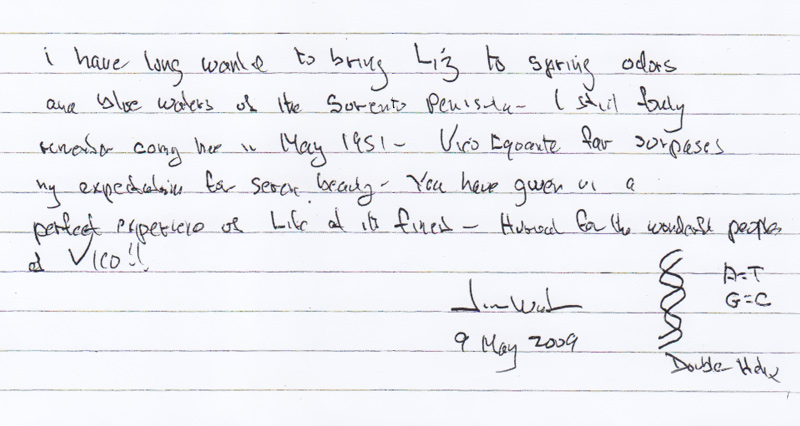 i have long wanted to bring Liz to spring odors
and blue waters of the Sorento Penisula- I still fondly
remember coming here in May 1951- Vico Equente far surpases
my expectations for serene beauty- You have given us a
perfect experience of Life at its finest- for the wonderful peoples
of Vico!!
9 May 2009
A=T
G=C
Double Helix